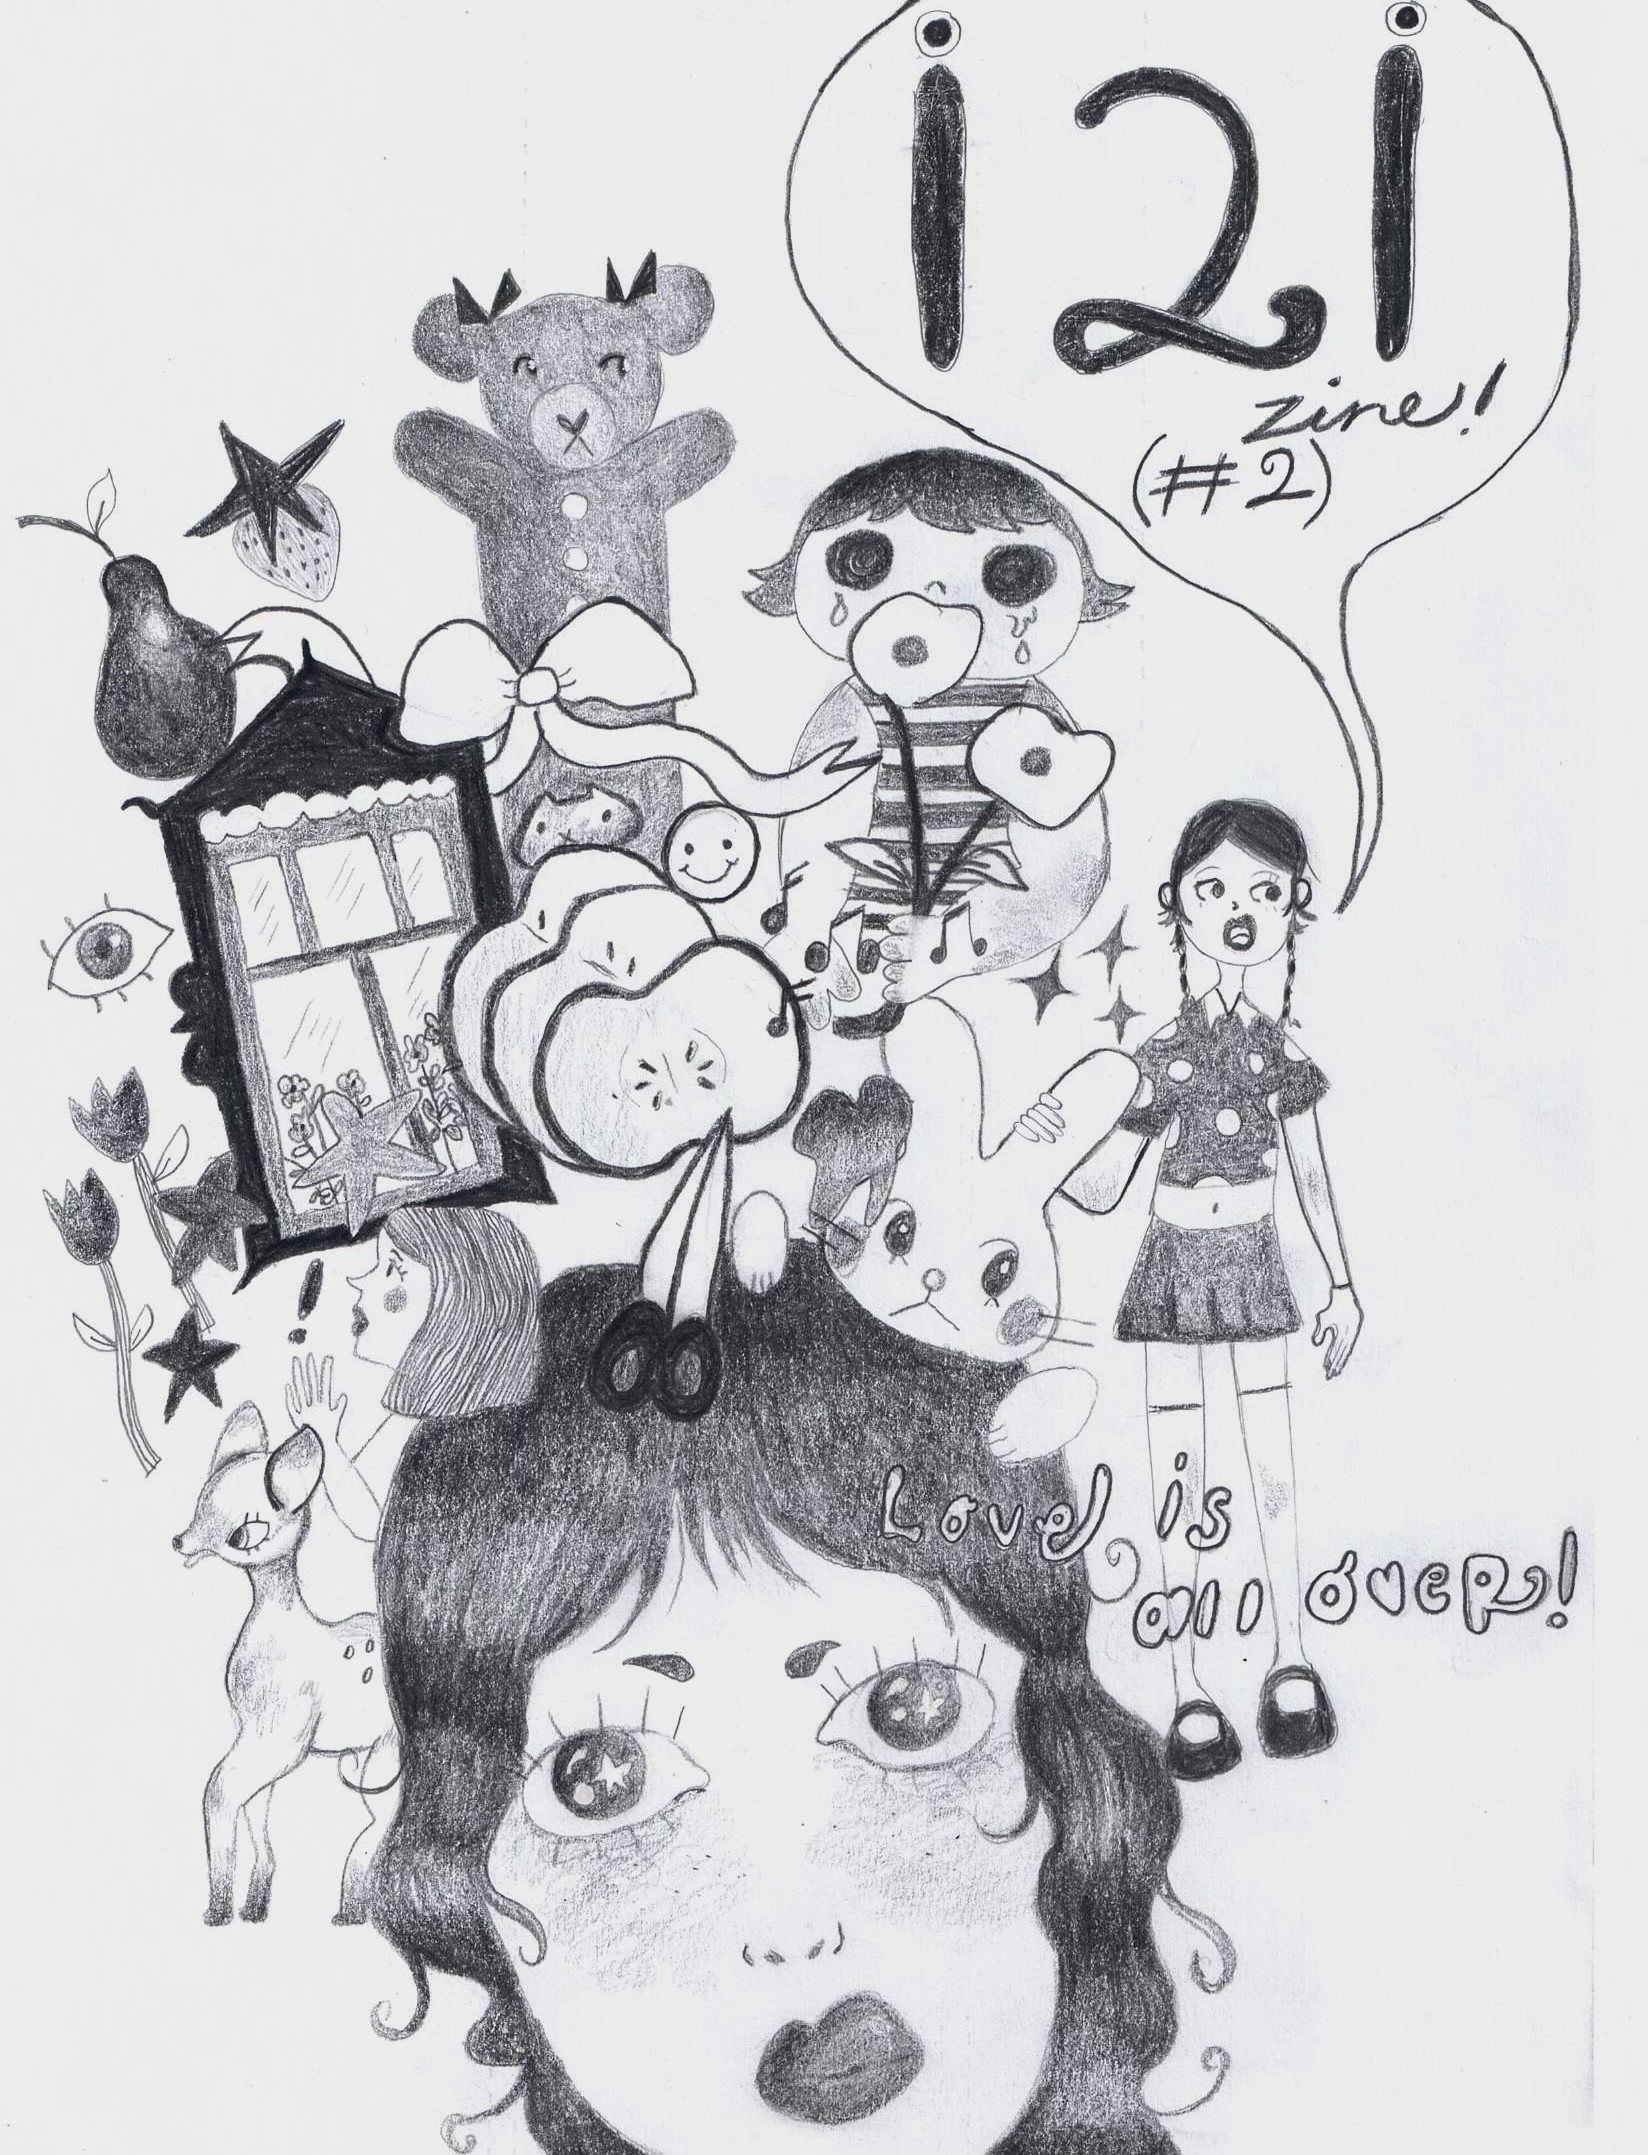 i 2 i
zine!
(#2)
Love is
all over!